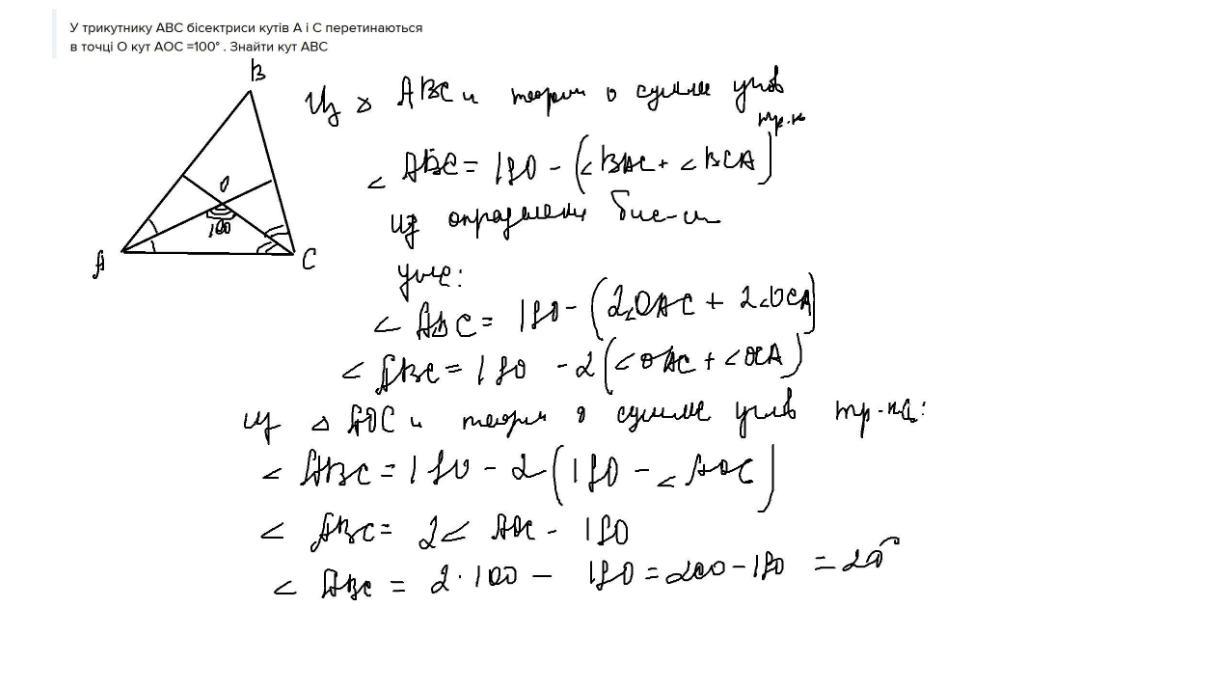 У трикутнику ABC бісектриси кутів А і С перетинаються
в точці О кут АОС =100° . Знайти кут АВС
B
Из △ ABC и теории о сумме углов
тр.к
∠ ABC = 180 - (∠BAC + ∠BCA)
O
100
A
C
из определения бис-и
угле:
∠ ABC = 180 - (2∠OAC + 2∠OCA)
∠ ABC = 180 - 2(∠OAC + ∠OCA)
из △ AOC и теории о сумме углов тр-ка:
∠ ABC = 180 - 2(180 - ∠ AOC)
∠ ABC = 2∠ AOC - 180
∠ ABC = 2·100 - 180 = 200 - 180 = 20°